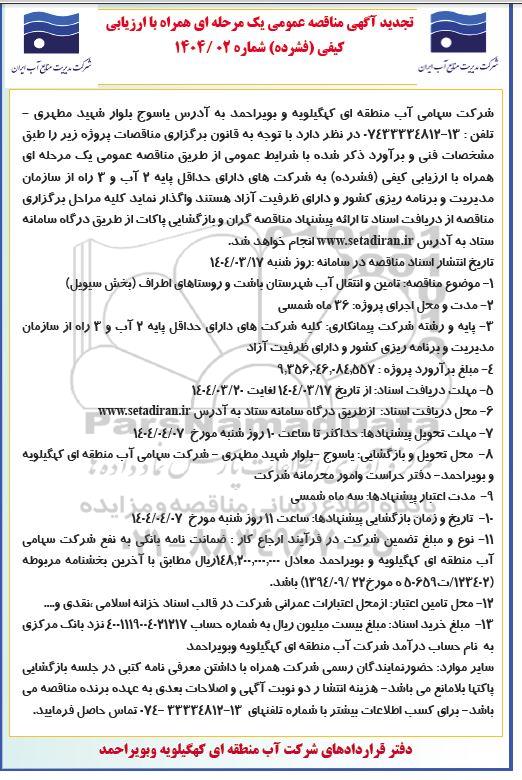 تجدید آگهی مناقصه عمومی یک مرحله ای همراه با ارزیابی
کیفی (فشرده) شماره ۰۲ /۱۴۰۴
شرکت مدیریت منابع آب ایران
شرکت مدیریت منابع آب ایران
شرکت سهامی آب منطقه ای کهگیلویه و بویراحمد به آدرس یاسوج بلوار شهید مطهری –
تلفن : ۱۳–۰۷۴۳۳۳۳۴۸۱۲ در نظر دارد با توجه به قانون برگزاری مناقصات پروژه زیر را طبق
مشخصات فنی و برآورد ذکر شده با شرایط عمومی از طریق مناقصه عمومی یک مرحله ای
همراه با ارزیابی کیفی (فشرده) به شرکت های دارای حداقل پایه ۲ آب و ۳ راه از سازمان
مدیریت و برنامه ریزی کشور و دارای ظرفیت آزاد هستند واگذار نماید کلیه مراحل برگزاری
مناقصه از دریافت اسناد تا ارائه پیشنهاد مناقصه گران و بازگشایی پاکات از طریق درگاه سامانه
ستاد به آدرس www.setadiran.ir انجام خواهد شد.
تاریخ انتشار اسناد مناقصه در سامانه :روز شنبه ۱۴۰۴/۰۳/۱۷
۱– موضوع مناقصه: تامین و انتقال آب شهرستان باشت و روستاهای اطراف (بخش سیویل)
۲– مدت و محل اجرای پروژه: ۳۶ ماه شمسی
۳– پایه و رشته شرکت پیمانکاری: کلیه شرکت های دارای حداقل پایه ۲ آب و ۳ راه از سازمان
مدیریت و برنامه ریزی کشور و دارای ظرفیت آزاد
۴– مبلغ برآورد پروژه : ۹,۳۵۶,۰۴۶,۰۸۴,۵۵۷
۵– مهلت دریافت اسناد: از تاریخ ۱۴۰۴/۰۳/۱۷ لغایت ۱۴۰۴/۰۳/۲۰
۶– محل دریافت اسناد: ازطریق درگاه سامانه ستاد به آدرس www.setadiran.ir
۷– مهلت تحویل پیشنهادها: حداکثر تا ساعت ۱۰ روز شنبه مورخ ۱۴۰۴/۰۴/۰۷
۸– محل تحویل و بازگشایی: یاسوج –بلوار شهید مطهری – شرکت سهامی آب منطقه ای کهگیلویه
و بویراحمد– دفتر حراست وامور محرمانه شرکت
۹– مدت اعتبار پیشنهادها: سه ماه شمسی
۱۰– تاریخ و زمان بازگشایی پیشنهادها: ساعت ۱۱ روز شنبه مورخ ۱۴۰۴/۰۴/۰۷
۱۱– نوع و مبلغ تضمین شرکت در فرآیند ارجاع کار : ضمانت نامه بانکی به نفع شرکت سهامی
آب منطقه ای کهگیلویه و بویراحمد معادل ۱۴۸,۲۰۰,۰۰۰,۰۰۰ریال مطابق با آخرین بخشنامه مربوطه
(۱۲۳۴۰۲/ت۵۰۶۵۹ ه مورخ۲۲ /۱۳۹۴/۰۹) باشد.
۱۲– محل تامین اعتبار: ازمحل اعتبارات عمرانی شرکت در قالب اسناد خزانه اسلامی ،نقدی و....
۱۳– مبلغ خرید اسناد: مبلغ بیست میلیون ریال به شماره حساب ۴۰۰۱۱۱۹۰۰۴۰۲۱۲۱۷ نزد بانک مرکزی
به نام حساب درآمد شرکت آب منطقه ای کهگیلویه وبویراحمد
سایر موارد: حضورنمایندگان رسمی شرکت همراه با داشتن معرفی نامه کتبی در جلسه بازگشایی
پاکتها بلامانع می باشد– هزینه انتشا ر دو نوبت آگهی و اصلاحات بعدی به عهده برنده مناقصه می
باشد– برای کسب اطلاعات بیشتر با شماره تلفنهای ۱۳–۳۳۳۳۴۸۱۲ –۰۷۴ تماس حاصل فرمایید.
دفتر قراردادهای شرکت آب منطقه ای کهگیلویه وبویراحمد